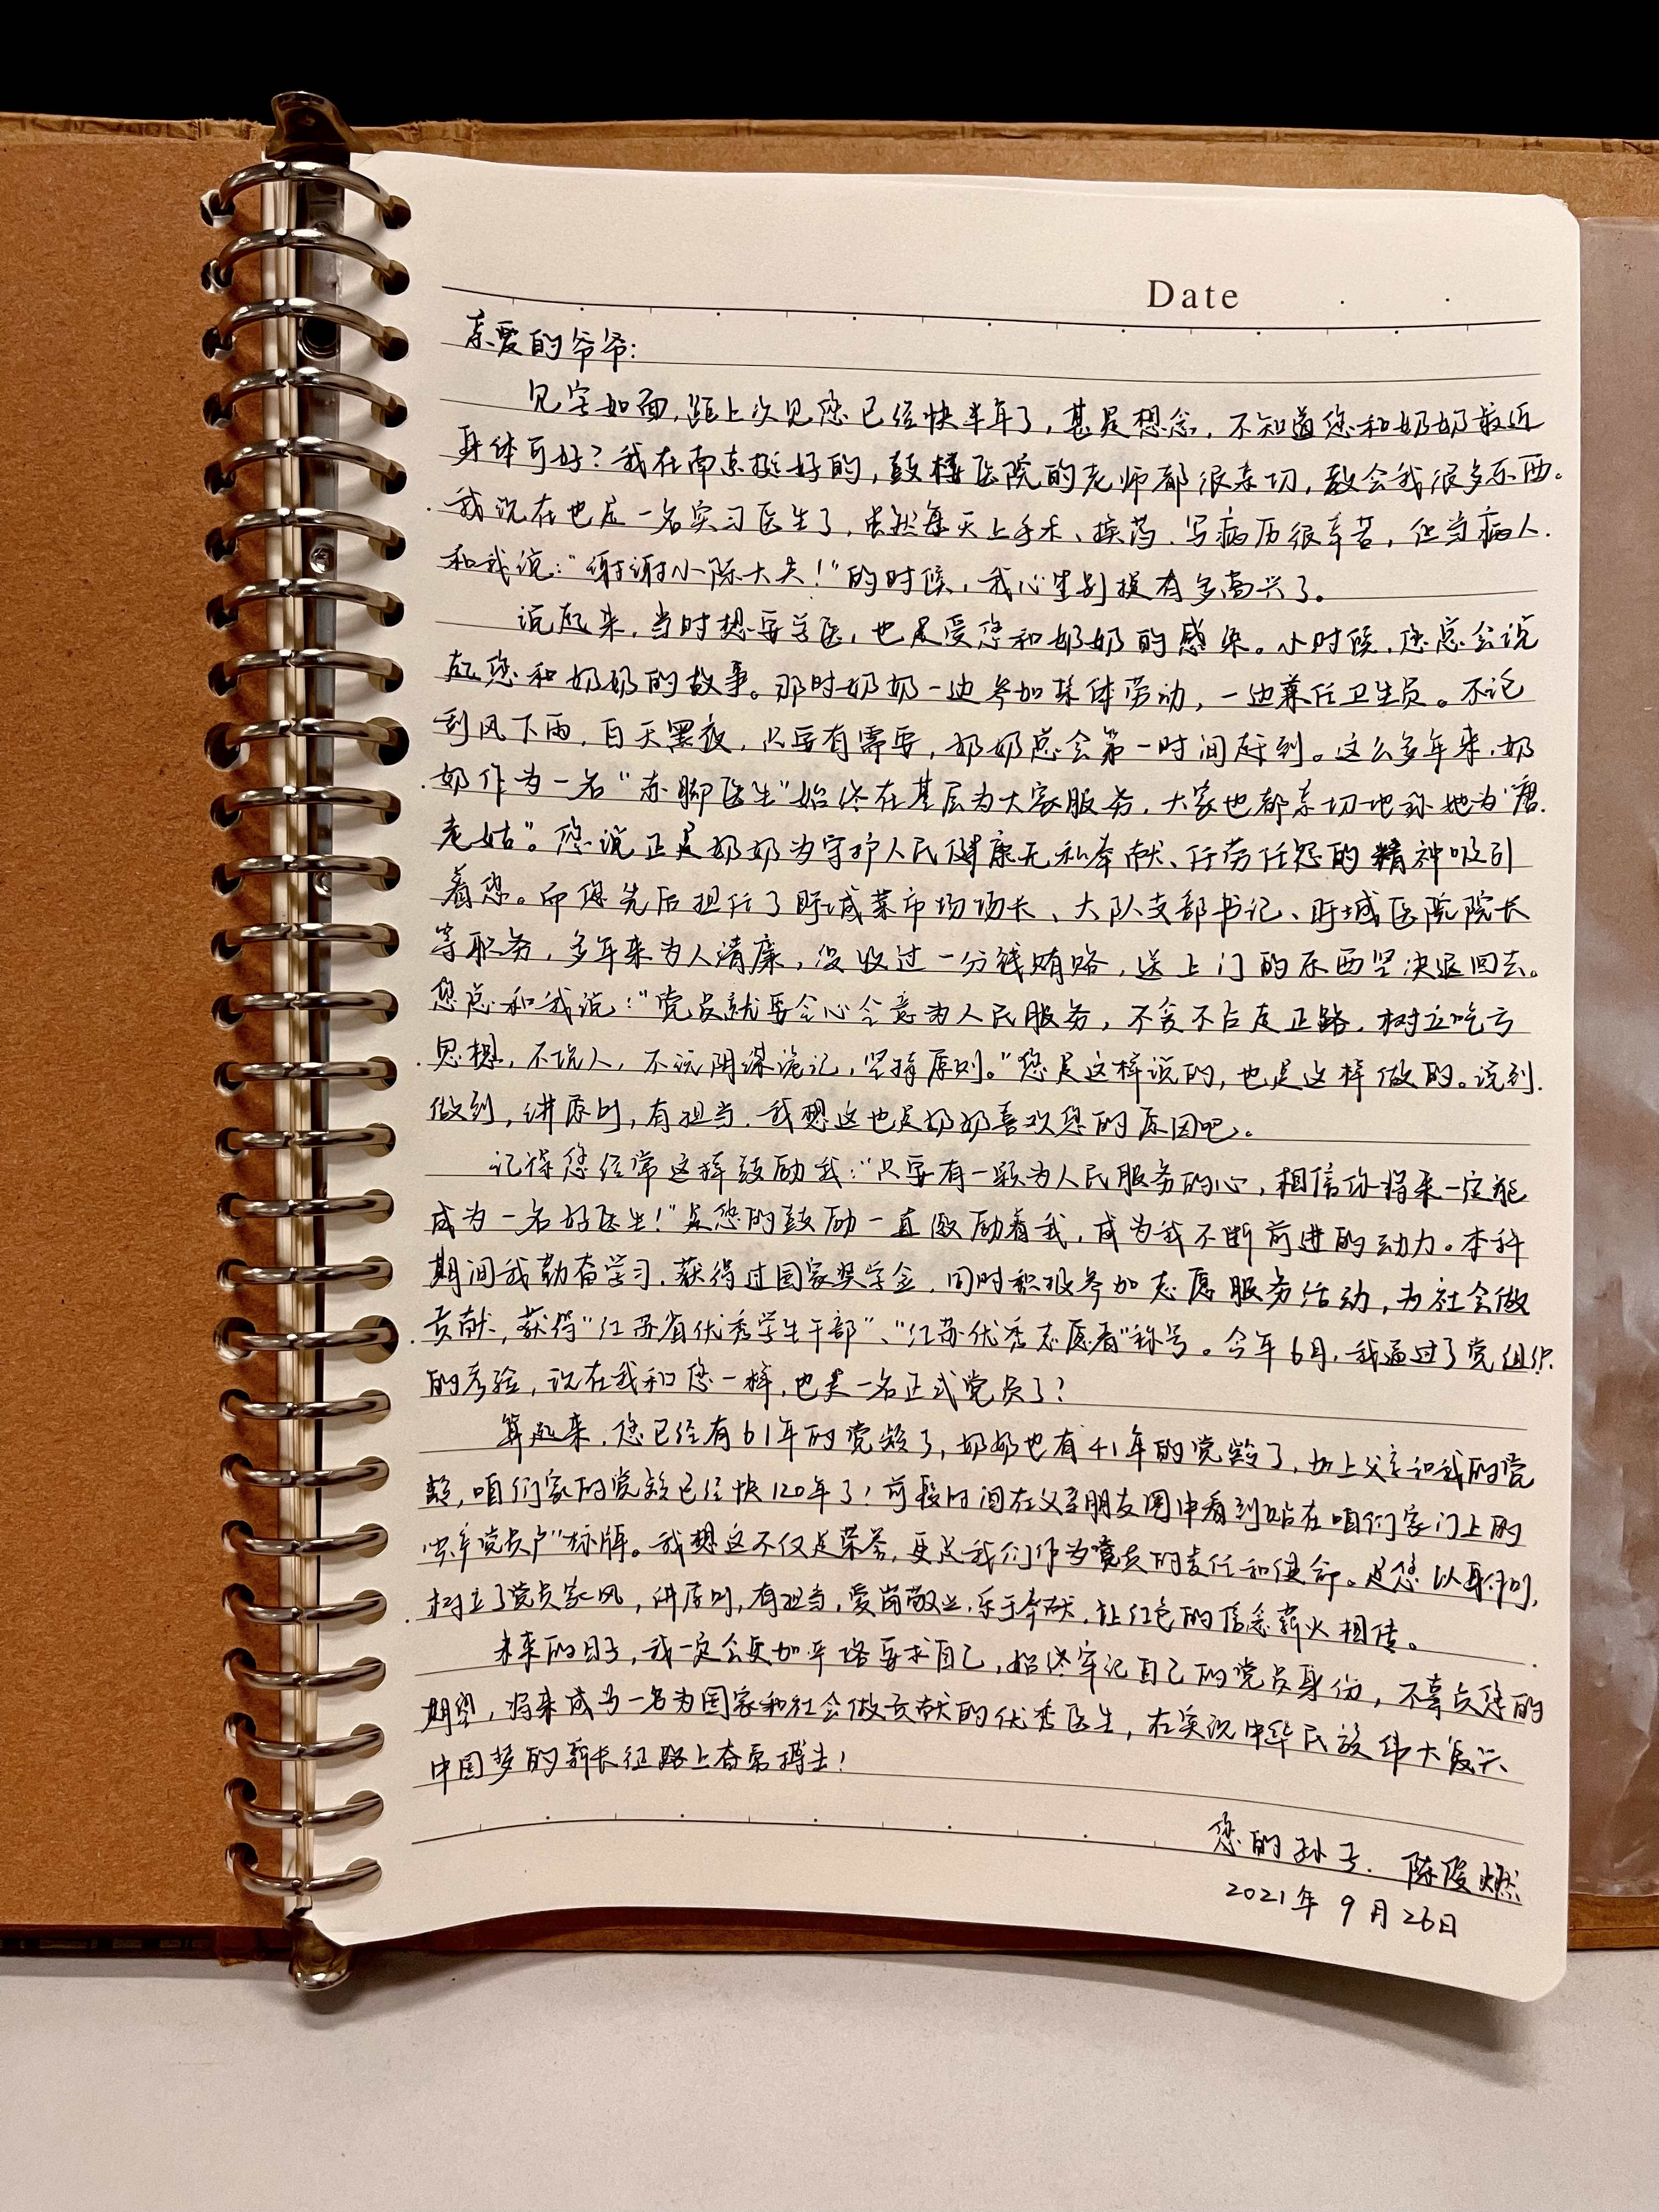 Date
亲爱的爷爷：
见字如面，距上次见您已经快半年了，甚是想念，不知道您和奶奶最近
身体可好？我在南京挺好的，鼓楼医院的老师都很亲切，教会我很多东西。
我现在也是一名实习医生了，虽然每天上手术、换药、写病历很辛苦，但当病人
和我说：“谢谢小陈大夫！”的时候，我心里别提有多高兴了。
说起来，当时想要学医，也是受您和奶奶的感染。小时候，您总会说
起您和奶奶的故事。那时奶奶一边参加集体劳动，一边兼任卫生员。不论
刮风下雨，白天黑夜，只要有需要，奶奶总会第一时间赶到。这么多年来，奶
奶作为一名“赤脚医生”始终在基层为大家服务，大家也都亲切地称她为“唐
老姑”。您说正是奶奶为守护人民健康无私奉献、任劳任怨的精神吸引
着您。而您先后担任了盱城菜市场场长、大队支部书记、盱城医院院长
等职务，多年来为人清廉，没收过一分钱贿赂，送上门的东西坚决退回去。
您总和我说：“党员就要全心全意为人民服务，不贪不占走正路，树立吃亏
思想，不坑人，不玩阴谋诡计，坚持原则。”您是这样说的，也是这样做的。说到
做到，讲原则，有担当，我想这也是奶奶喜欢您的原因吧。
记得您经常这样鼓励我：“只要有一颗为人民服务的心，相信你将来一定能
成为一名好医生！”是您的鼓励一直激励着我，成为我不断前进的动力。本科
期间我勤奋学习，获得过国家奖学金，同时积极参加志愿服务活动，为社会做
贡献，获得“江苏省优秀学生干部”、“江苏优秀志愿者”称号。今年6月，我通过了党组织
的考验，现在我和您一样，也是一名正式党员了！
算起来，您已经有61年的党龄了，奶奶也有41年的党龄了，加上父亲和我的党
龄，咱们家的党龄已经快120年了！前段时间在父亲朋友圈中看到贴在咱们家门上的
“共产党员户”标牌。我想这不仅是荣誉，更是我们作为党员的责任和使命。是您以身作则，
树立了党员家风，讲原则，有担当，爱岗敬业，乐于奉献，让红色的信念薪火相传。
未来的日子，我一定会更加严格要求自己，始终牢记自己的党员身份，不辜负您的
期望，将来成为一名为国家和社会做贡献的优秀医生，在实现中华民族伟大复兴
中国梦的新长征路上奋勇搏击！
您的孙子：陈俊燃
2021年9月26日